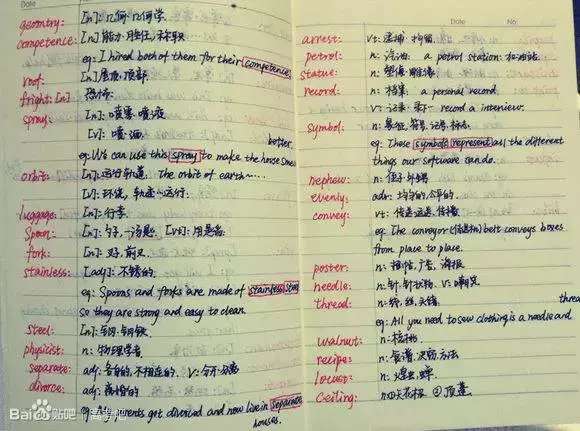 Date
geometry: [n]: 几何.几何学.
competence: [n] 能力.胜任,称职
eg: I hired both of them for their competence
roof: [n] 屋顶.顶部.
fright: [n] 恐怖.
spray: [n]: 喷雾.喷液
[v]: 喷.洒.
better.
eg: We can use this spray to make the house smell
orbit: [n]: 运行轨道. The orbit of earth~...
[v]: 环绕, 轨道~运行.
luggage: [n]: 行李.
Spoon: [n]: 勺子,一汤匙. [vt]: 用匙舀
fork: [n]: 叉,
stainless: [adj]: 不锈的
eg: Spoons and forks are made of stainless steel
so they are strong and easy to clean.
steel: [n]: 钢.钢铁
physicist: n: 物理学者
separate: adj: 各自的,不相连的. v: 分开.
divorce: adj: 离婚的
eg: My parents get divorced and now live in separate
houses.
Date No.
arrest: vt: 逮捕.拘留.
petrol: n: 汽油. a petrol station: 加油站
statue: n: 塑像.雕像
record: n: 档案. a personal record
v: 记录. record a interview.
symbol: n: 象征,符号,记号.标志.
eg: These symbols represent all the different
things our software can do.
nephew: n: 侄子.外甥
evenly: adv: 均匀的.平的.
convey: vt: 传递.运送,传播
eg: The conveyor (传送带) belt conveys boxes
from place to place.
poster: n: 招贴,广告,海报
needle: n: 针.针状物. v:
thread: n: 线,丝,
thread
eg: All you need to sew clothing is a needle and
walnut: n: 核桃.
recipe: n: 食谱.烹饪方法
locust: n: 蝗虫,蝉
ceiling: n: ① 天花板 ② 顶蓬.
Baidu贴吧